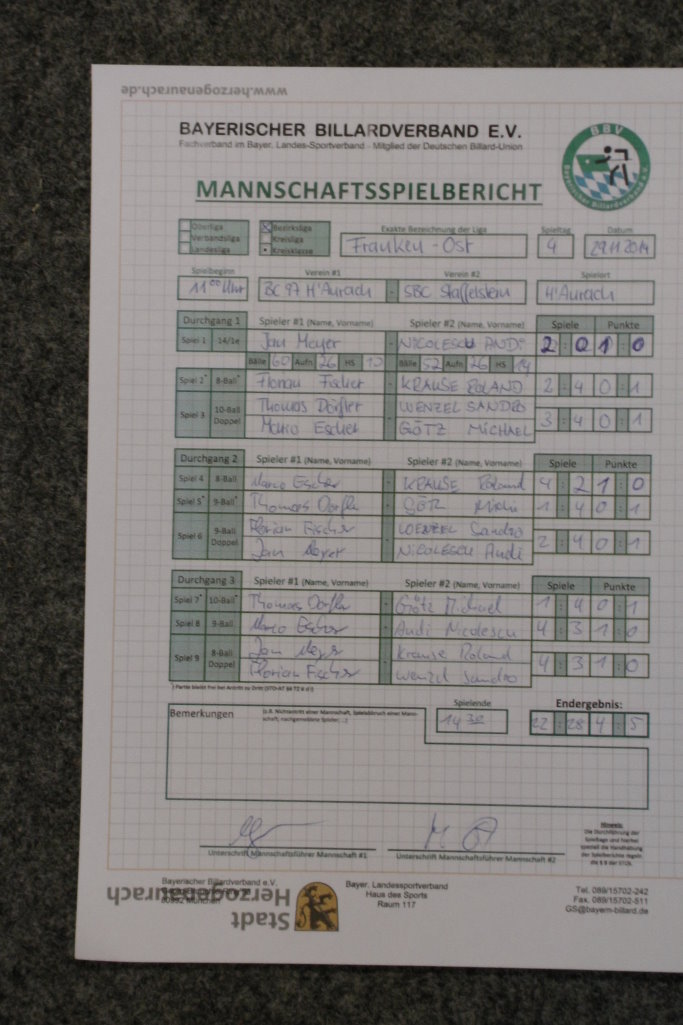 www.herzogenaurach.de
BAYERISCHER BILLARDVERBAND E.V.
Fachverband im Bayer. Landes-Sportverband - Mitglied der Deutschen Billard-Union
BBV
Bayerischer Billardverband
MANNSCHAFTSSPIELBERICHT
Oberliga Bezirksliga Exakte Bezeichnung der Liga Spieltag Datum
Verbandsliga Kreisliga Franken-Ost 9
Landesliga Kreisklasse
Spielbeginn Verein #1 Verein #2 Spielort
11 00 Uhr BC 97 H'Aurach - SBC Staffelstein H'Aurach
Durchgang 1 Spieler #1 (Name, Vorname) Spieler #2 (Name, Vorname) Spiele Punkte
Spiel 1 14/1e Jan Meyer - NICOLESCU ANDI 2 : 0 1 : 0
Bälle 60 Aufn 26 HS 10 Bälle 52 Aufn 26 HS 14
Spiel 2* 8-Ball* Florian Fischer - KRAUSE ROLAND 2 : 4 0 : 1
Spiel 3 10-Ball Doppel Thomas Dörfler - WENZEL SANDRO 3 : 4 0 : 1
Marco Escher GÖTZ MICHAEL
Durchgang 2 Spieler #1 (Name, Vorname) Spieler #2 (Name, Vorname) Spiele Punkte
Spiel 4 8-Ball Marco Escher - KRAUSE Roland 4 : 2 1 : 0
Spiel 5* 9-Ball* Thomas Dörfler - GÖTZ Michi 1 : 4 0 : 1
Spiel 6 9-Ball Doppel Florian Fischer - WENZEL Sandro 2 : 4 0 : 1
Jan Meyer NICOLESCU Andi
Durchgang 3 Spieler #1 (Name, Vorname) Spieler #2 (Name, Vorname) Spiele Punkte
Spiel 7* 10-Ball* Thomas Dörfler - Götz Michael 1 : 4 0 : 1
Spiel 8 9-Ball Marco Escher - Andi Nicolescu 4 : 3 1 : 0
Spiel 9 8-Ball Doppel Jan Meyer - Krause Roland 4 : 3 1 : 0
Florian Fischer Wenzel Sandro
Spielende Endergebnis:
Bemerkungen 14 30 22 : 28 4 : 5
Unterschrift Mannschaftsführer Mannschaft #1 Unterschrift Mannschaftsführer Mannschaft #2
Hinweis:
Die Durchführung der
Spieltage und hierbei
speziell die Handhabung
der Spielberichte regeln
Bayerischer Billardverband e.V. Bayer. Landessportverband Tel. 089/15702-242
Haus des Sports Fax. 089/15702-511
80992 München Raum 117 GS@bayern-billard.de
Stadt
Herzogenaurach